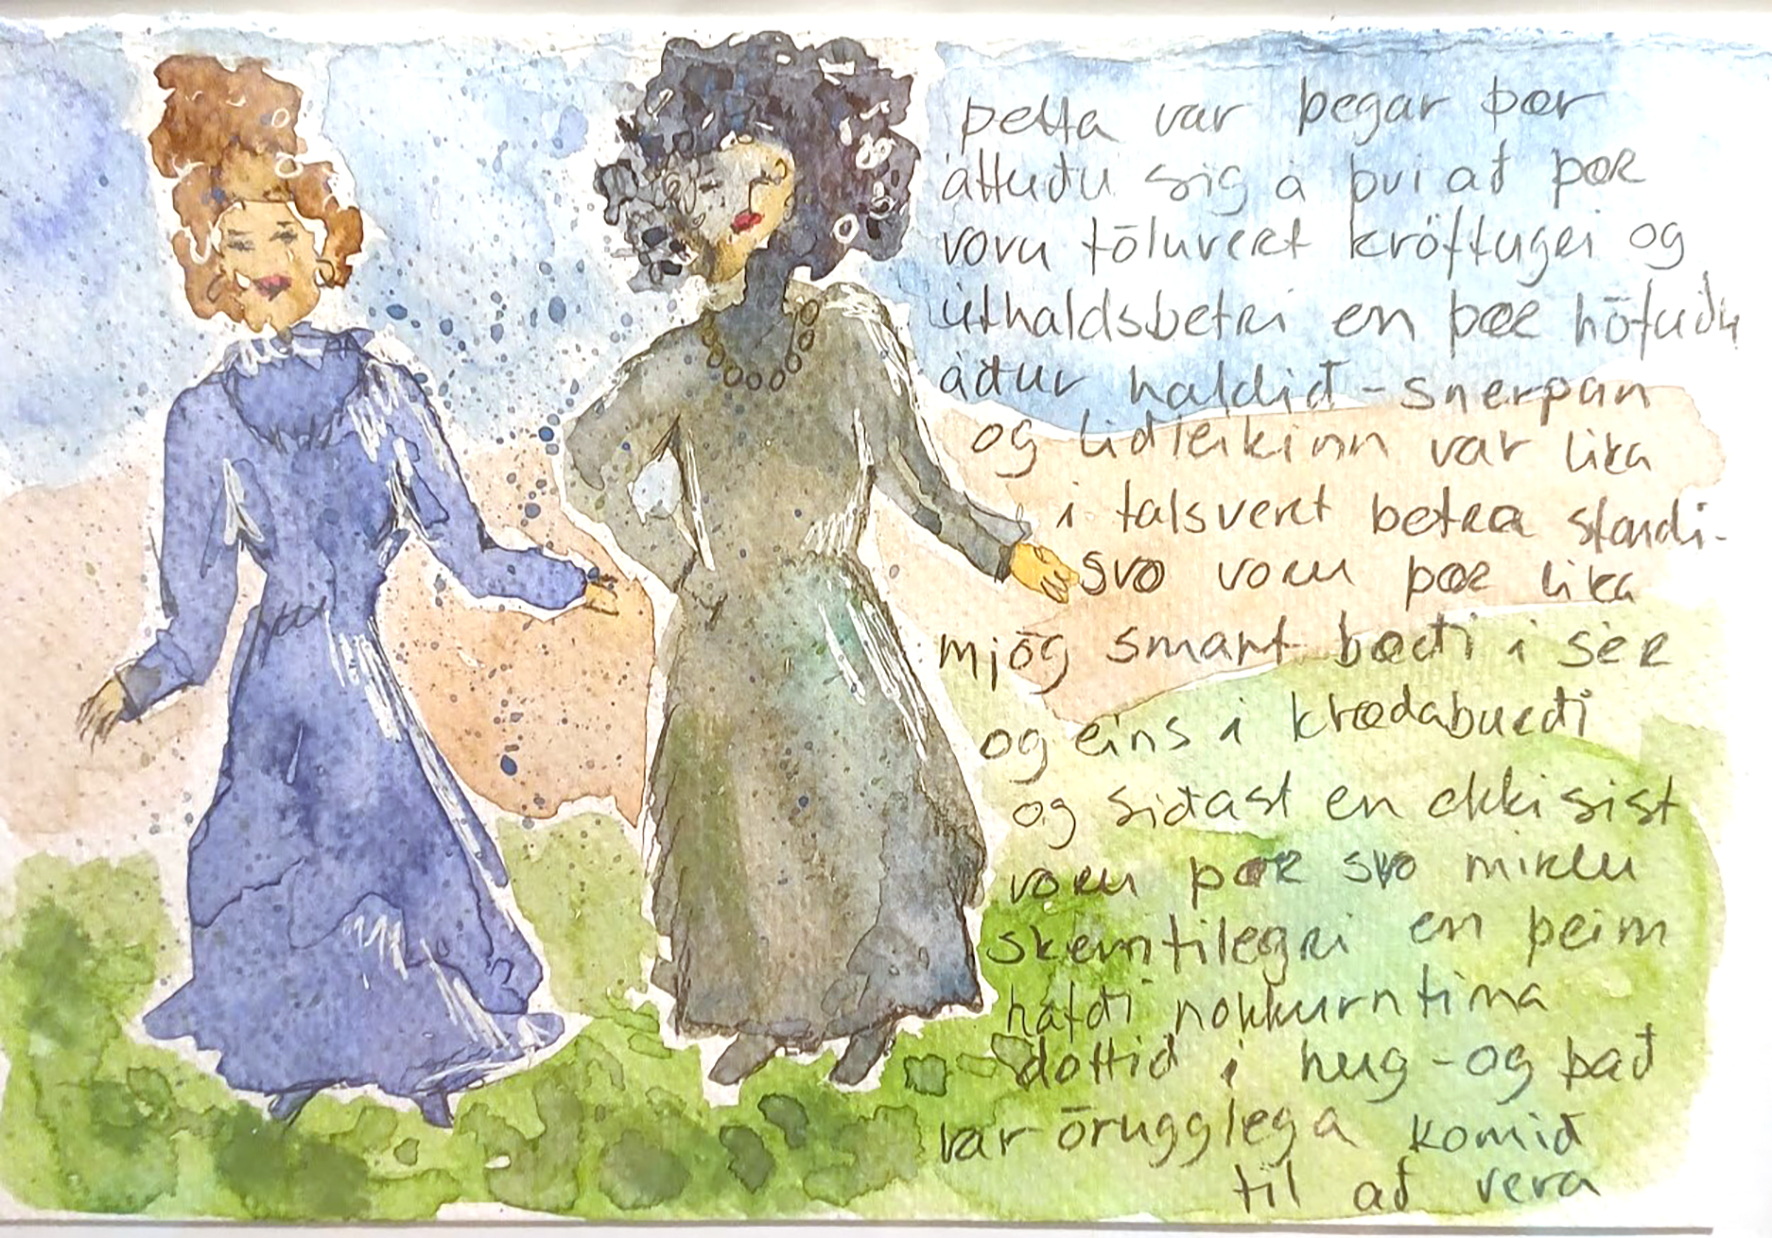 þetta var þegar þær
áttuðu sig á því að þær
voru töluvert kröftugri og
úthaldsbetri en þær höfuðu
áður haldið - snerpan
og liðleikinn var líka
í talsvert betra standi -
svo voru þær líka
mjög smart bæði í sér
og eins í klæðaburði
og síðast en ekki síst
voru þær svo miklu
skemtilegri en þeim
hafði nokkurntíma
dottið í hug - og það
var örugglega komið
til að vera